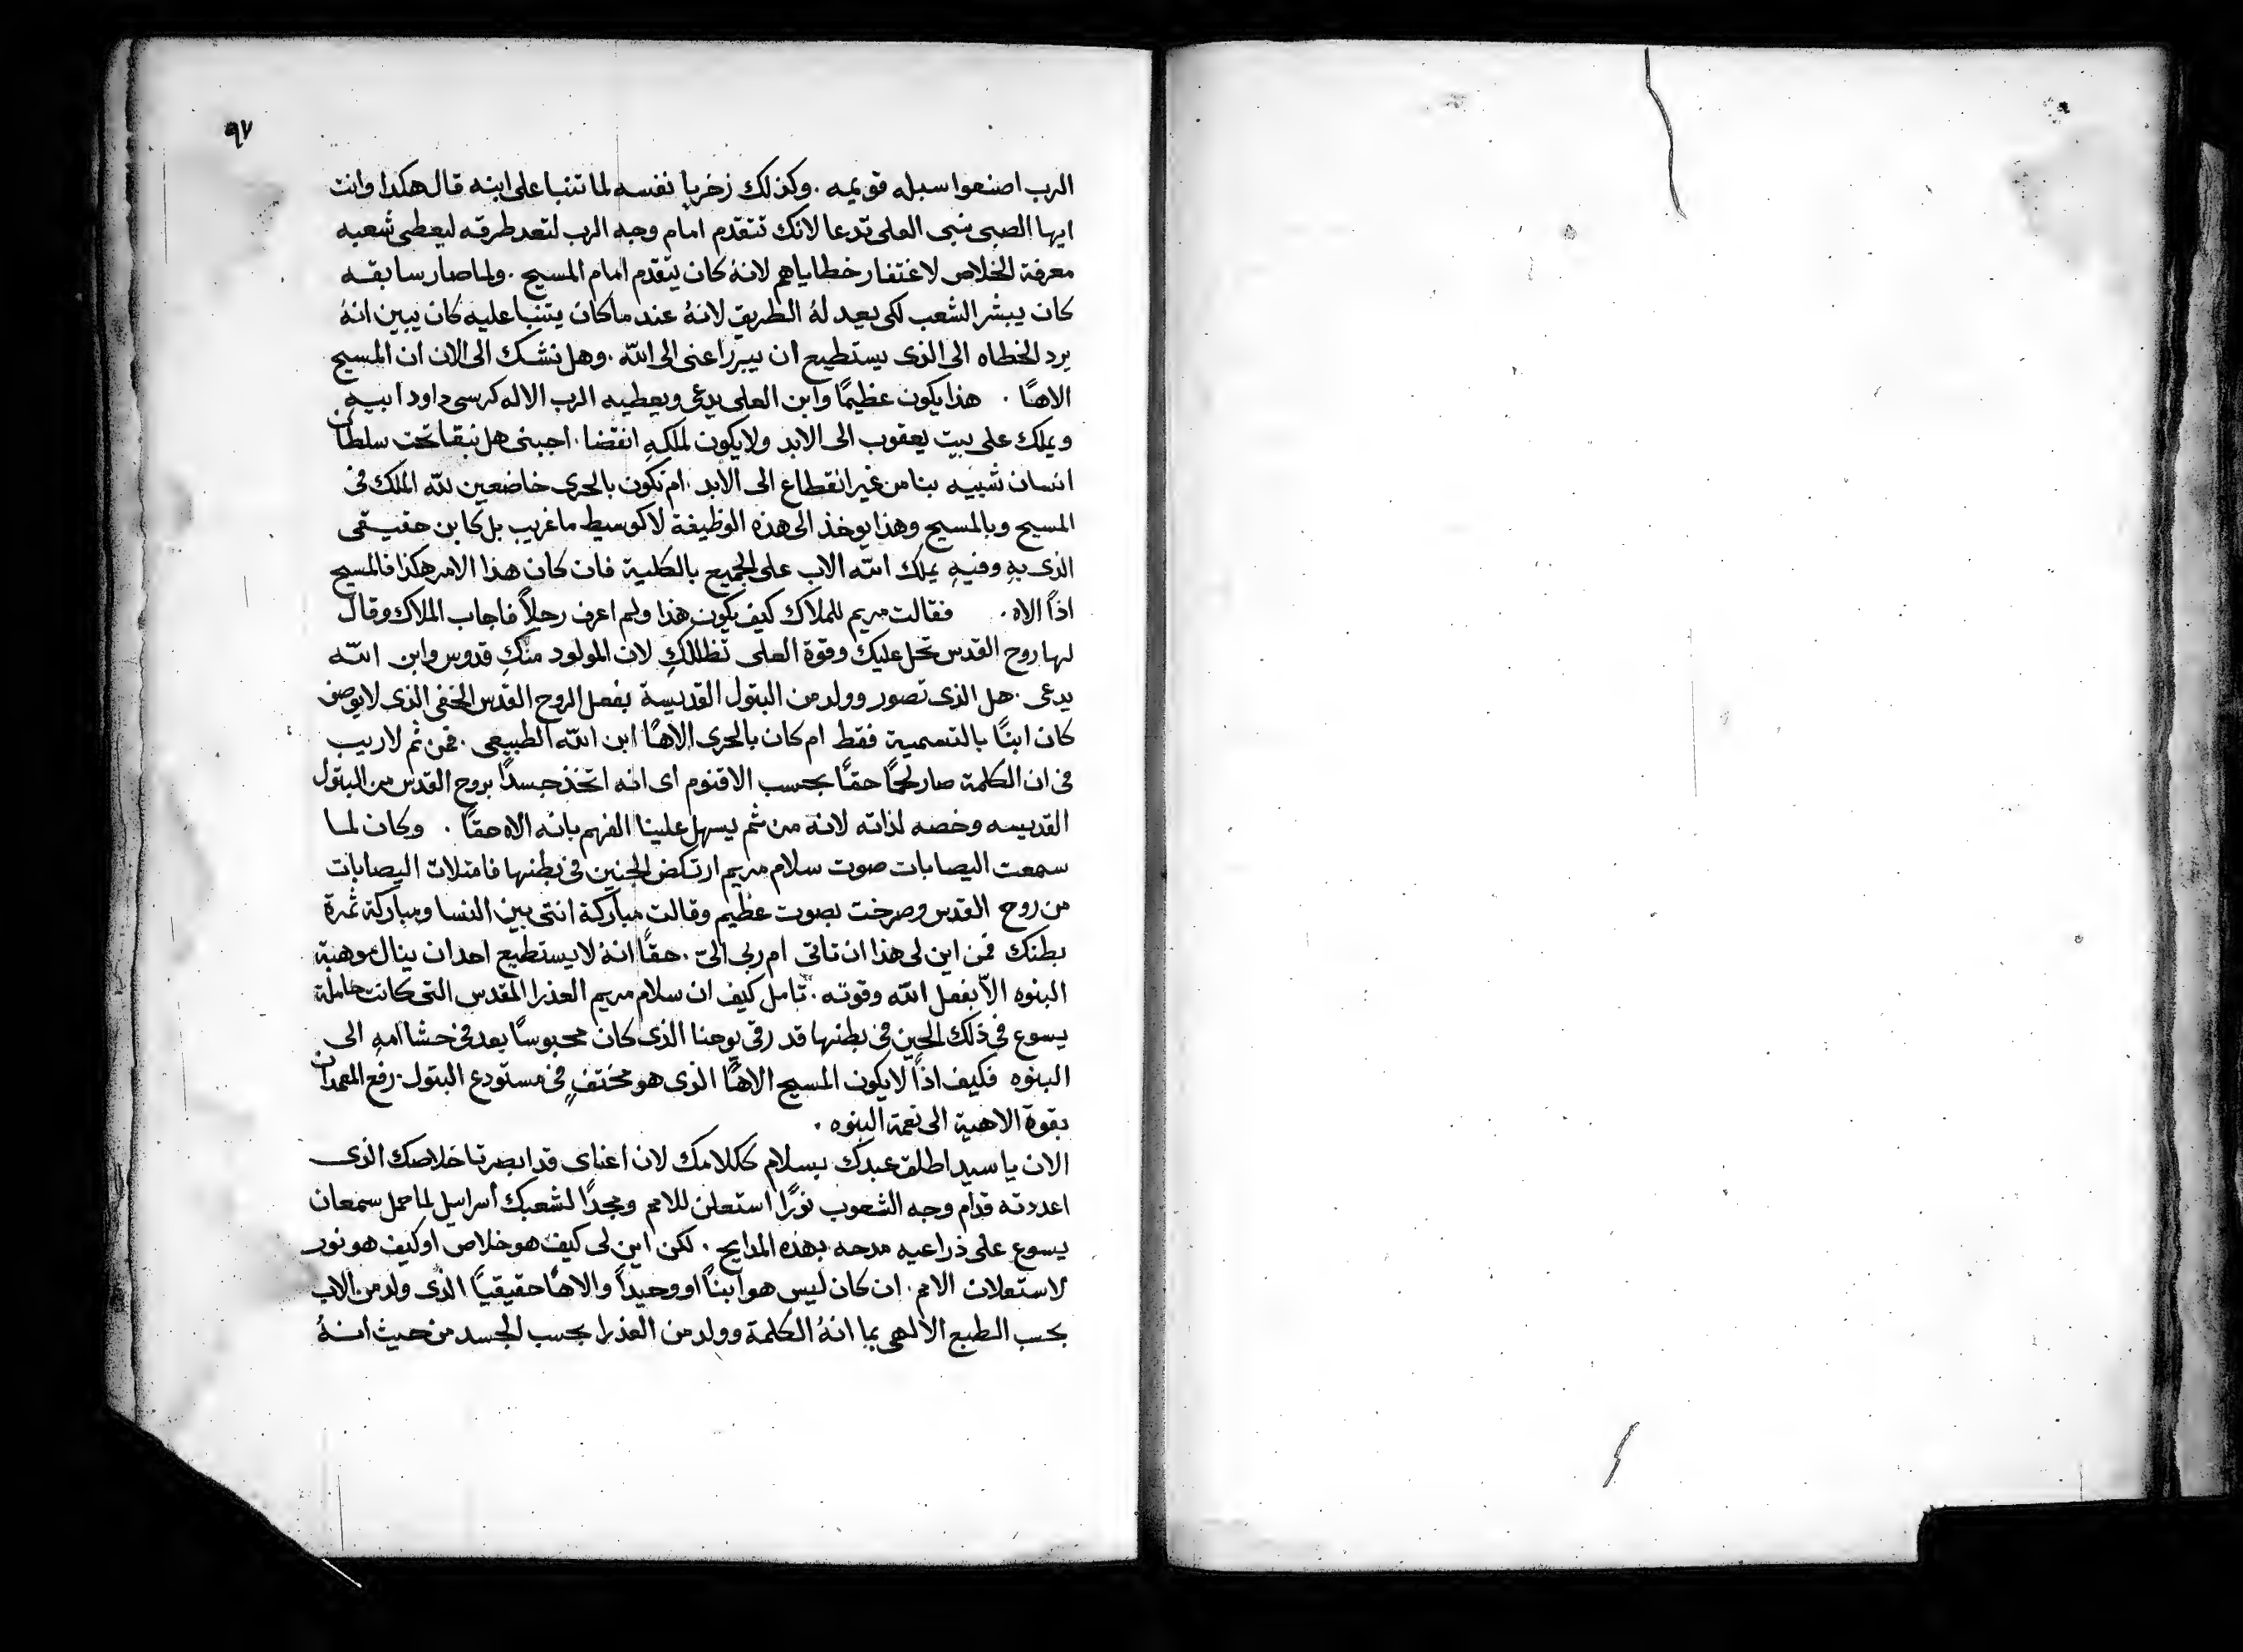 ٩٧
الرب اصنعوا سبله قويمه . وكذلك زخريا نفسه لما تنبا على ابنه قال هكذا وانت
ايها الصبى نبى العلى تدعا لانك تتقدم امام وجه الرب لتعد طرقه ليعطى شعبه
معرفة الخلاص لاغتفار خطاياهم لانهُ كان يتقدم امام المسيح . ولما صار سابقه
كان يبشر الشعب لكى يعد لهُ الطريق لانهُ عندما كان يتنبا عليه كان يبين انهُ
يرد الخطاه الى الذى يستطيع ان يبرر اعنى الى الله . وهل نشك الى الان ان المسيح
الاهًا . هذا يكون عظيمًا وابن العلى يدعى ويعطيه الرب الاله كرسى داود ابيهِ
ويملك على بيت يعقوب الى الابد ولا يكون لملكهِ انقضا . اجبنى هل نبقا تحت سلطان
انسان شبيه بنا من غير انقطاع الى الابد . ام نكون بالحرى خاضعين لله الملك فى
المسيح وبالمسيح وهذا يوخذ الى هذه الوظيفة لا كوسيط ما غريب بل كابن حقيقى
الذى بهِ وفيهِ يملك الله الاب على الجميع بالكلية فان كان هذا الامر هكذا فالمسيح
اذاً الاه . فقالت مريم للملاك كيف يكون هذا ولم اعرف رجلاً فاجاب الملاك وقال
لها روح القدس تحل عليك وقوة العلى تظللكِ لان المولود منكِ قدوس وابن الله
يدعى . هل الذى تصور وولد من البتول القديسة بفعل الروح القدس الخفى الذى لا يوصف
كان ابنًا بالتسمية فقط ام كان بالحرى الاهًا ابن الله الطبيعى . فمن ثم لا ريب
فى ان الكلمة صار لحمًا حقًا بحسب الاقنوم اى انه اتخذ جسدًا بروح القدس من البتول
القديسه وخصه لذاته لانه من ثم يسهل علينا الفهم بانه الاه حقًا . وكان لما
سمعت اليصابات صوت سلام مريم ارتكض الجنين فى بطنها فامتلات اليصابات
من روح القدس وصرخت بصوت عظيم وقالت مباركة انتى بين النسا ومباركة ثمرة
بطنك فمن اين لى هذا ان تاتى ام ربى الىّ . حقًا انهُ لا يستطيع احد ان ينال موهبة
البنوه الاّ بفعل الله وقوته . تامل كيف ان سلام مريم العذرا المقدس التى كانت حاملة
يسوع فى ذلك الحين فى بطنها قد رقى يوحنا الذى كان محبوسًا بعد فى حشا امهِ الى
البنوه فكيف اذاً لا يكون المسيح الاهًا الذى هو مختفٍ فى مستودع البتول . رفع المعمدان
بقوة الاهية الى نعمة البنوه .
الان يا سيد اطلق عبدك بسلام ككلامك لان اعناى قد ابصرتا خلاصك الذى
اعددته قدام وجه الشعوب نورًا استعلن للامم ومجدًا لشعبك أسراييل لما حمل سمعان
يسوع على ذراعيه مدحه بهذه المدايح . لكن ابن لى كيف هو خلاص او كيف هو نور
لاستعلان الامم . ان كان ليس هو ابناً او وحيداً والاهًا حقيقيًا الذى ولد من الاب
بحسب الطبع الالهى بما انهُ الكلمة وولد من العذرا بحسب الجسد من حيث انهُ